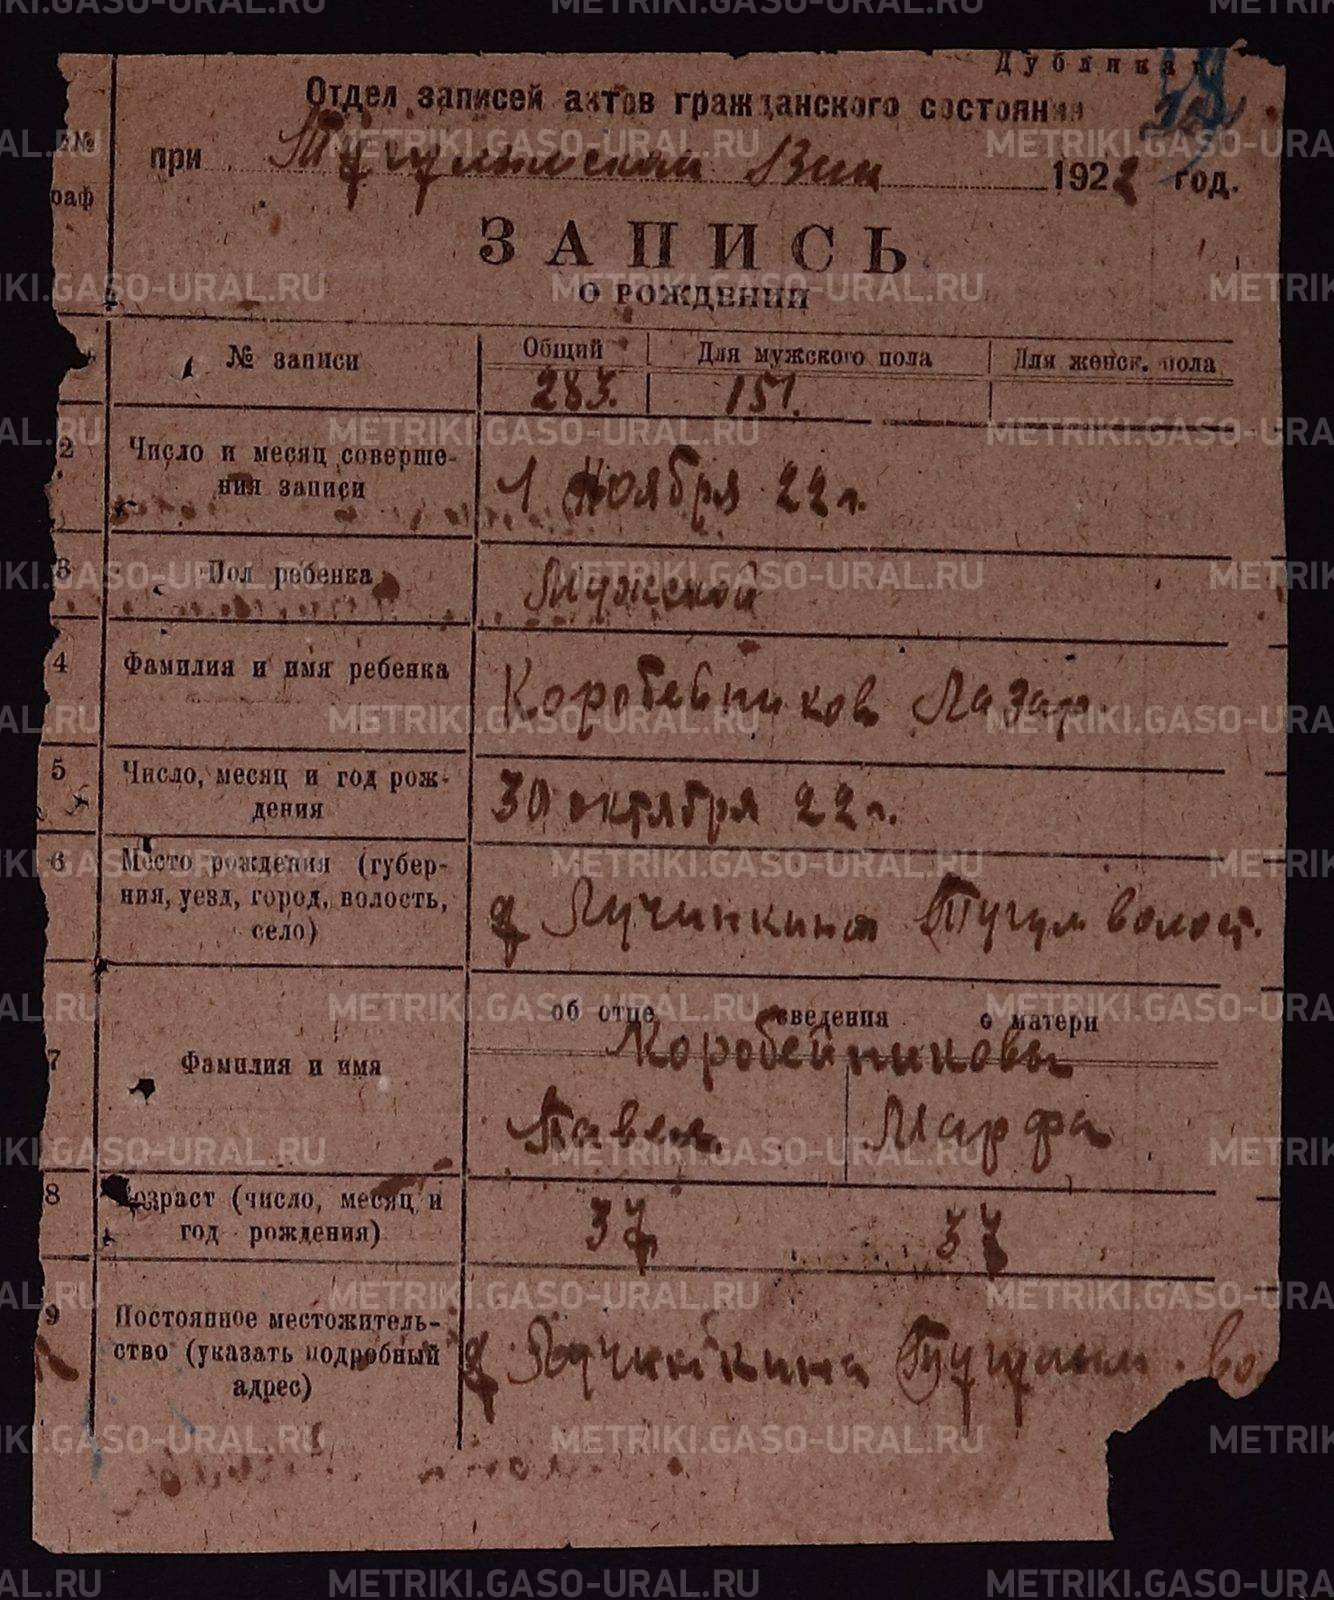 Дубликат
Отдел записей актов гражданского состояния
при Тугулымской Вик 1922 год.
№№
раф
ЗАПИСЬ
О РОЖДЕНИИ
№ записи Общий Для мужского пола Для женск. пола
283. 151.
2 Число и месяц соверше-
ния записи 1 Ноября 22 г.
3 Пол ребенка Мужской
4 Фамилия и имя ребенка Коробейников Лазар.
5 Число, месяц и год рож-
дения 30 октября 22 г.
6 Место рождения (губер-
ния, уезд, город, волость,
село) д Лучинкина Тугул волост.
об отце сведения о матери
Коробейниковы
7 Фамилия и имя
Павел Марфа
8 Возраст (число, месяц и
год рождения) 37 37
9 Постоянное местожитель-
ство (указать подробный
адрес) д Лучинкина Тугулым. во
METRIKI.GASO-URAL.RU